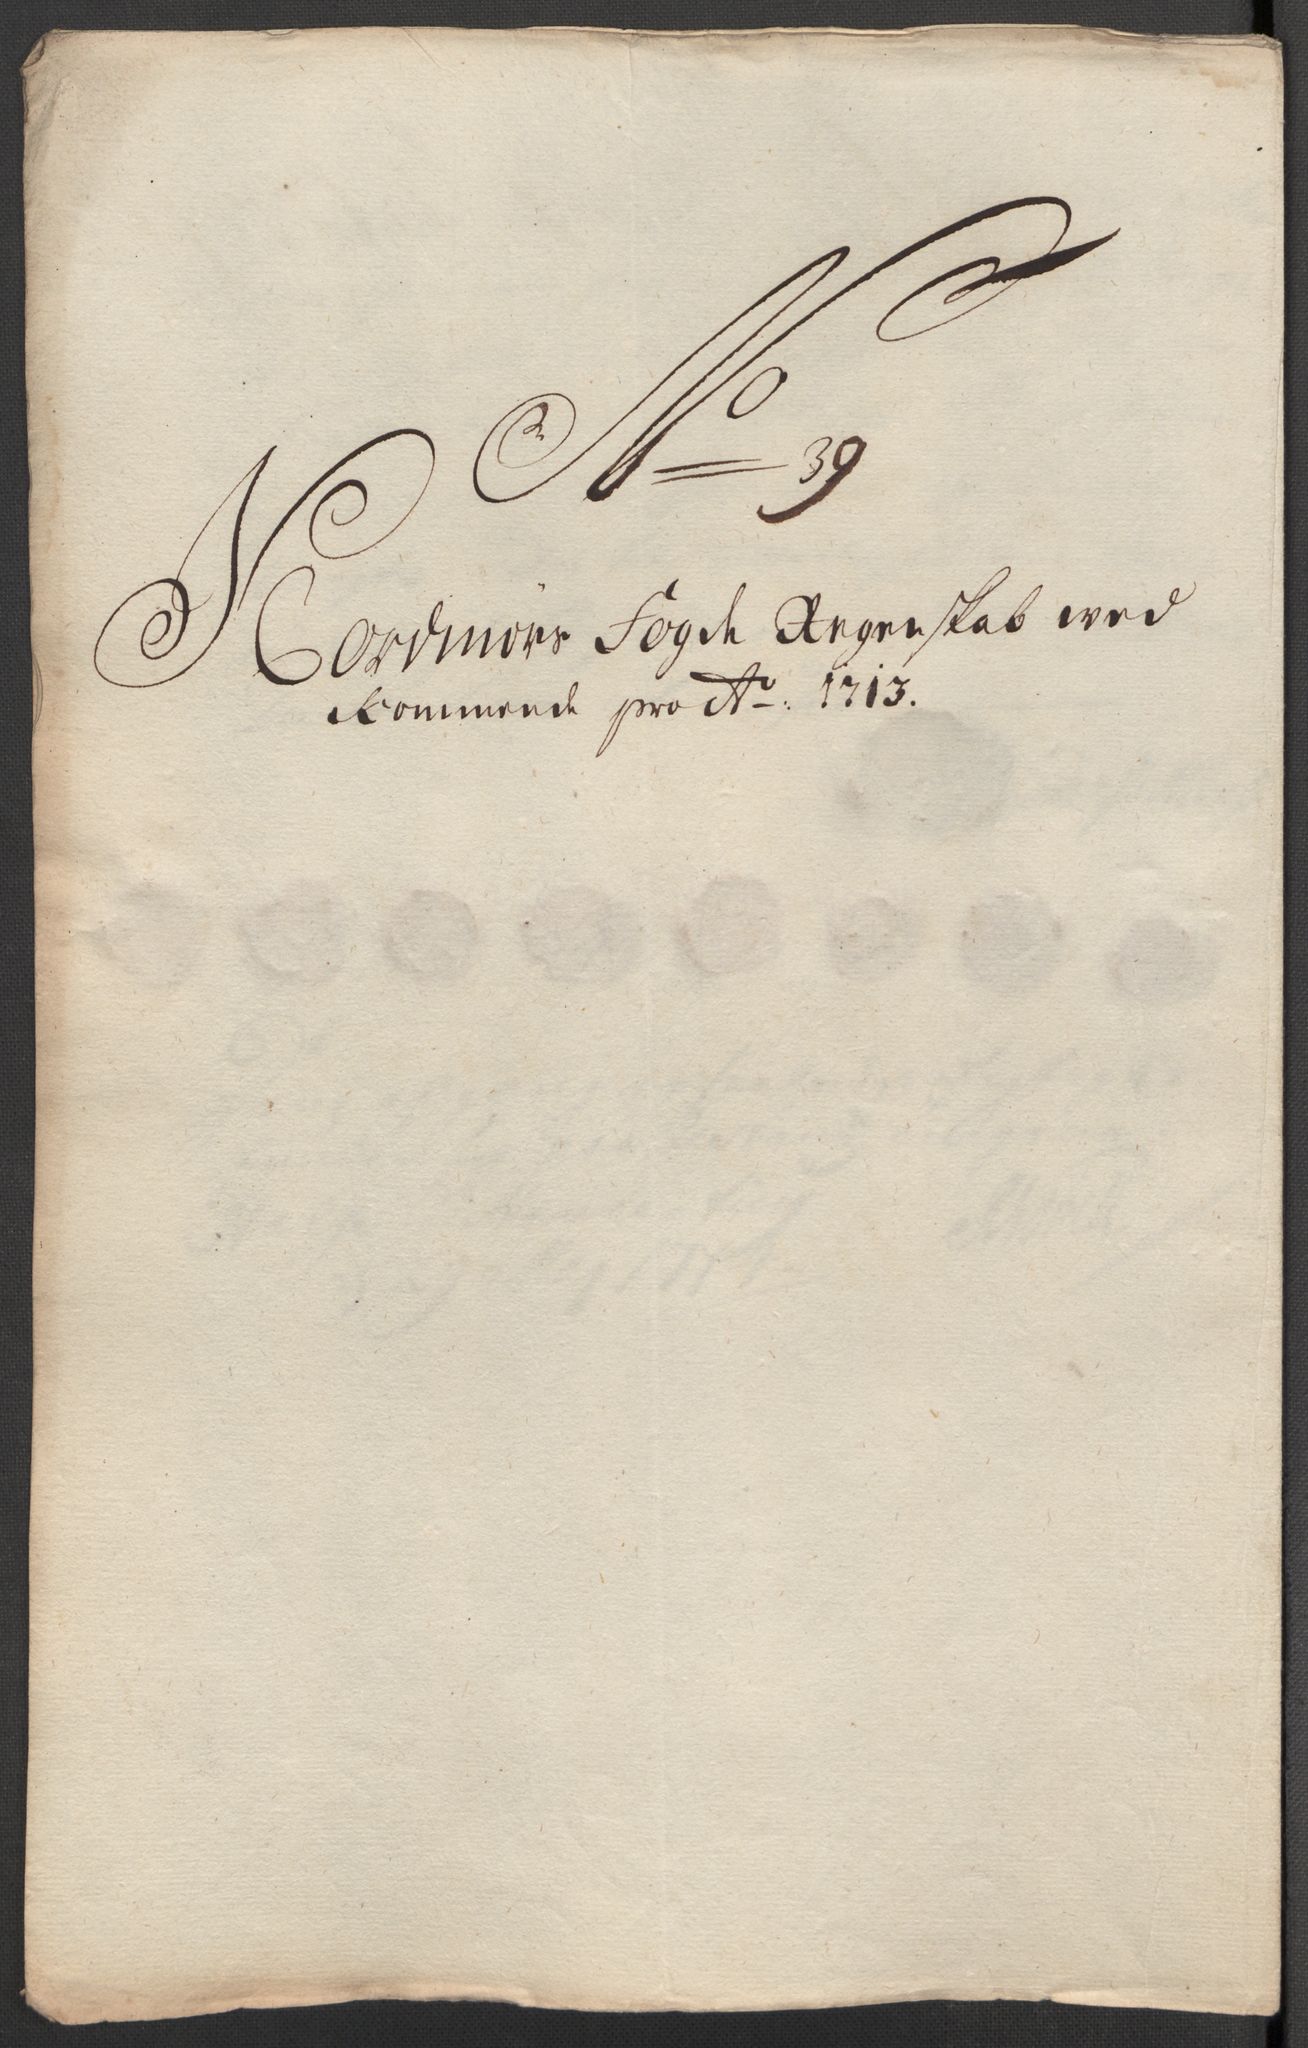 No 39
Nordmørs Fogde Regenskab ved
kommende pro Ao: 1713.